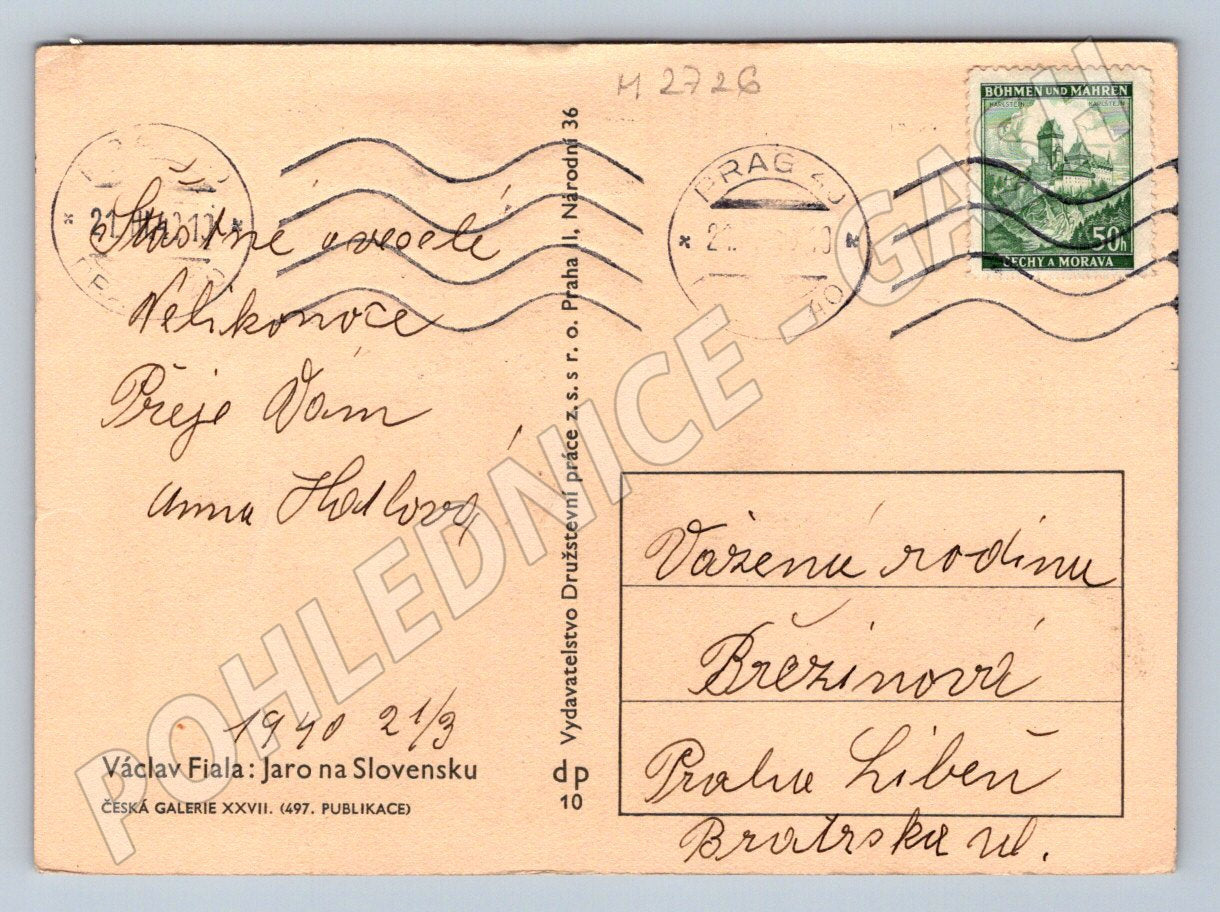 M 2726
BÖHMEN UND MÄHREN
KARLSTEIN KARLŠTEJN
50h
ČECHY A MORAVA
PRAG 40
21.
Šťastné a veselé
Velikonoce
Přeje Vám
Anna
1940 21/3
Václav Fiala: Jaro na Slovensku
ČESKÁ GALERIE XXVII. (497. PUBLIKACE)
Vydavatelstvo Družstevní práce z. s. s r. o. Praha II, Národní 36
dp
10
Váženú rodinu
Březinová
Praha Libeň
Bratrska ul.
POHLEDNICE - GASH